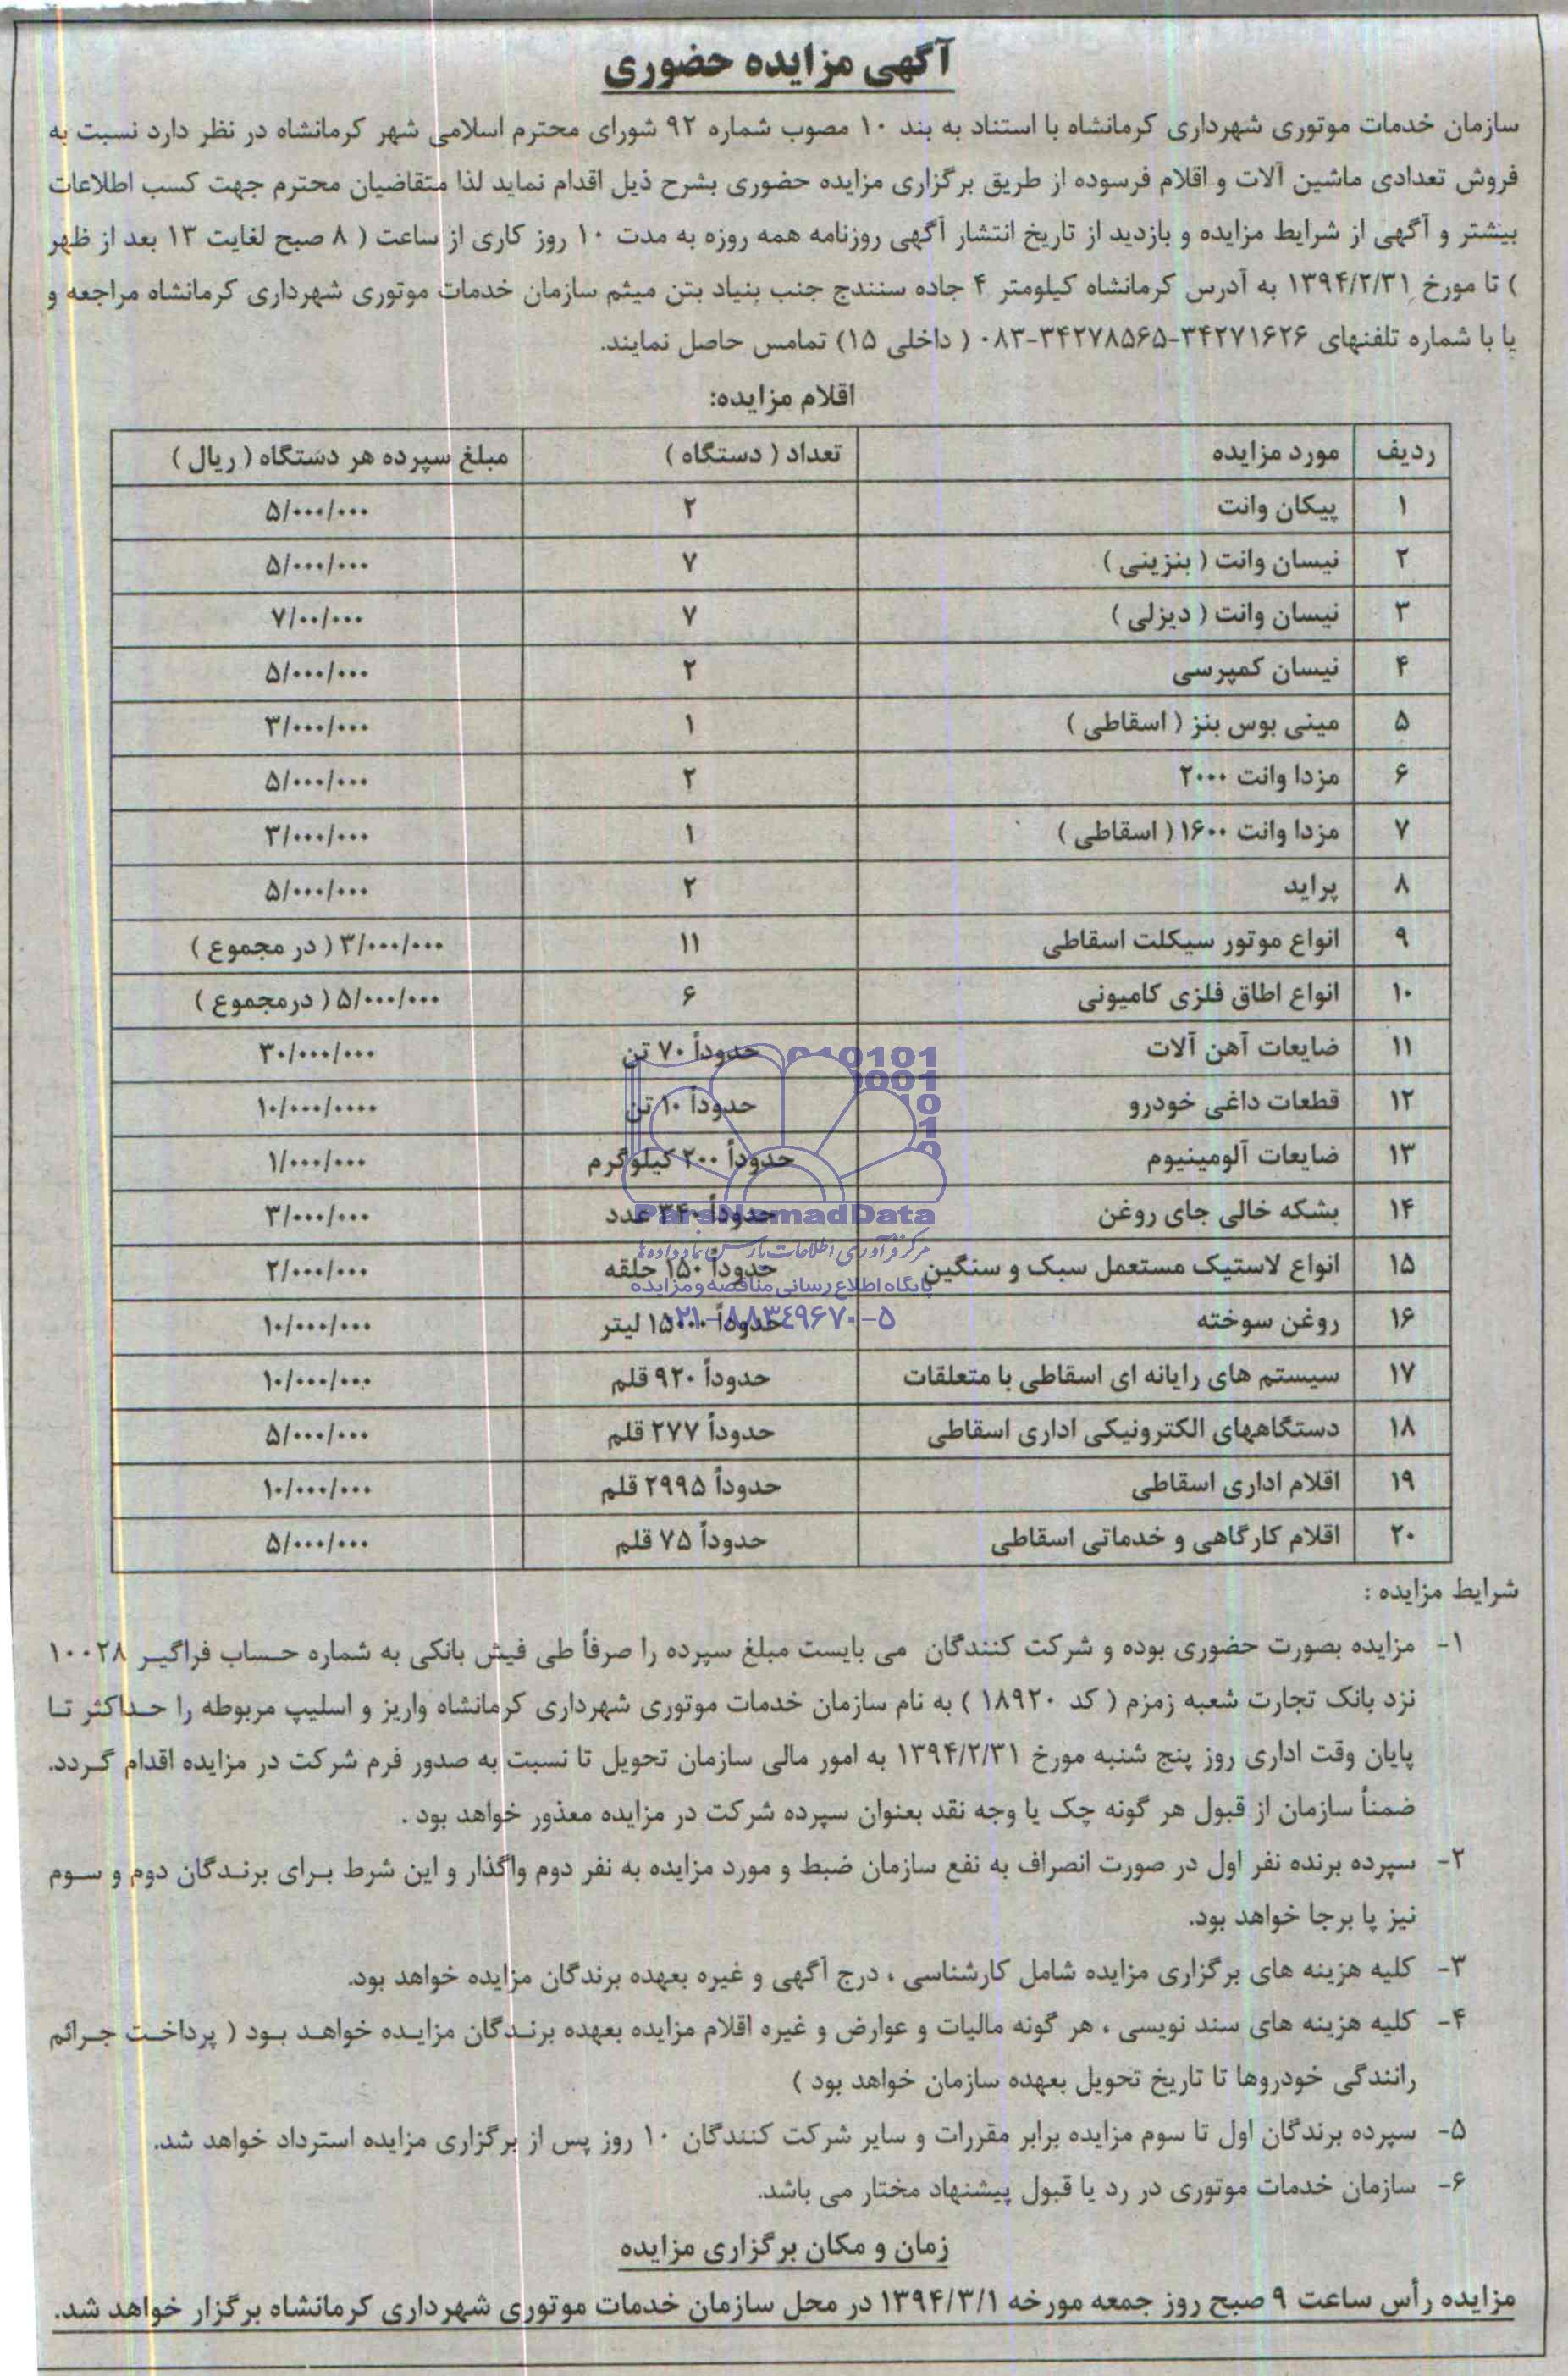 آگهی مزایده حضوری
سازمان خدمات موتوری شهرداری کرمانشاه با استناد به بند ۱۰ مصوب شماره ۹۲ شورای محترم اسلامی شهر کرمانشاه در نظر دارد نسبت به
فروش تعدادی ماشین آلات و اقلام فرسوده از طریق برگزاری مزایده حضوری بشرح ذیل اقدام نماید لذا متقاضیان محترم جهت کسب اطلاعات
بیشتر و آگهی از شرایط مزایده و بازدید از تاریخ انتشار آگهی روزنامه همه روزه به مدت ۱۰ روز کاری از ساعت ( ۸ صبح لغایت ۱۳ بعد از ظهر
) تا مورخ ۱۳۹۴/۲/۳۱ به آدرس کرمانشاه کیلومتر ۴ جاده سنندج جنب بنیاد بتن میثم سازمان خدمات موتوری شهرداری کرمانشاه مراجعه و
یا با شماره تلفنهای ۳۴۲۷۱۶۲۶-۳۴۲۷۸۵۶۵-۰۸۳ ( داخلی ۱۵) تمامس حاصل نمایند.
اقلام مزایده:
ردیف مورد مزایده تعداد ( دستگاه ) مبلغ سپرده هر دستگاه ( ریال )
۱ پیکان وانت ۲ ۵/۰۰۰/۰۰۰
۲ نیسان وانت ( بنزینی ) ۷ ۵/۰۰۰/۰۰۰
۳ نیسان وانت ( دیزلی ) ۷ ۷/۰۰/۰۰۰
۴ نیسان کمپرسی ۲ ۵/۰۰۰/۰۰۰
۵ مینی بوس بنز ( اسقاطی ) ۱ ۳/۰۰۰/۰۰۰
۶ مزدا وانت ۲۰۰۰ ۲ ۵/۰۰۰/۰۰۰
۷ مزدا وانت ۱۶۰۰ ( اسقاطی ) ۱ ۳/۰۰۰/۰۰۰
۸ پراید ۲ ۵/۰۰۰/۰۰۰
۹ انواع موتور سیکلت اسقاطی ۱۱ ۳/۰۰۰/۰۰۰ ( در مجموع )
۱۰ انواع اطاق فلزی کامیونی ۶ ۵/۰۰۰/۰۰۰ ( درمجموع )
۱۱ ضایعات آهن آلات حدوداً ۷۰ تن ۳۰/۰۰۰/۰۰۰
۱۲ قطعات داغی خودرو حدوداً ۱۰ تن ۱۰/۰۰۰/۰۰۰۰
۱۳ ضایعات آلومینیوم حدوداً ۲۰۰ کیلوگرم ۱/۰۰۰/۰۰۰
۱۴ بشکه خالی جای روغن حدوداً ۳۴۰ عدد ۳/۰۰۰/۰۰۰
۱۵ انواع لاستیک مستعمل سبک و سنگین حدوداً ۱۵۰ حلقه ۲/۰۰۰/۰۰۰
۱۶ روغن سوخته حدوداً ۱۵۰۰۰ لیتر ۱۰/۰۰۰/۰۰۰
۱۷ سیستم های رایانه ای اسقاطی با متعلقات حدوداً ۹۲۰ قلم ۱۰/۰۰۰/۰۰۰
۱۸ دستگاههای الکترونیکی اداری اسقاطی حدوداً ۲۷۷ قلم ۵/۰۰۰/۰۰۰
۱۹ اقلام اداری اسقاطی حدوداً ۲۹۹۵ قلم ۱۰/۰۰۰/۰۰۰
۲۰ اقلام کارگاهی و خدماتی اسقاطی حدوداً ۷۵ قلم ۵/۰۰۰/۰۰۰
ParsNamadData
مرکز فرآوری اطلاعات پارس نماد داده ها
پایگاه اطلاع رسانی مناقصه و مزایده
۰۲۱-۸۸۳۴۹۶۷۰-۵
شرایط مزایده :
۱- مزایده بصورت حضوری بوده و شرکت کنندگان می بایست مبلغ سپرده را صرفاً طی فیش بانکی به شماره حساب فراگیر ۱۰۰۲۸
نزد بانک تجارت شعبه زمزم ( کد ۱۸۹۲۰ ) به نام سازمان خدمات موتوری شهرداری کرمانشاه واریز و اسلیپ مربوطه را حداکثر تا
پایان وقت اداری روز پنج شنبه مورخ ۱۳۹۴/۲/۳۱ به امور مالی سازمان تحویل تا نسبت به صدور فرم شرکت در مزایده اقدام گردد.
ضمناً سازمان از قبول هر گونه چک یا وجه نقد بعنوان سپرده شرکت در مزایده معذور خواهد بود .
۲- سپرده برنده نفر اول در صورت انصراف به نفع سازمان ضبط و مورد مزایده به نفر دوم واگذار و این شرط برای برندگان دوم و سوم
نیز پا برجا خواهد بود.
۳- کلیه هزینه های برگزاری مزایده شامل کارشناسی ، درج آگهی و غیره بعهده برندگان مزایده خواهد بود.
۴- کلیه هزینه های سند نویسی ، هر گونه مالیات و عوارض و غیره اقلام مزایده بعهده برندگان مزایده خواهد بود ( پرداخت جرائم
رانندگی خودروها تا تاریخ تحویل بعهده سازمان خواهد بود )
۵- سپرده برندگان اول تا سوم مزایده برابر مقررات و سایر شرکت کنندگان ۱۰ روز پس از برگزاری مزایده استرداد خواهد شد.
۶- سازمان خدمات موتوری در رد یا قبول پیشنهاد مختار می باشد.
زمان و مکان برگزاری مزایده
مزایده رأس ساعت ۹ صبح روز جمعه مورخه ۱۳۹۴/۳/۱ در محل سازمان خدمات موتوری شهرداری کرمانشاه برگزار خواهد شد.